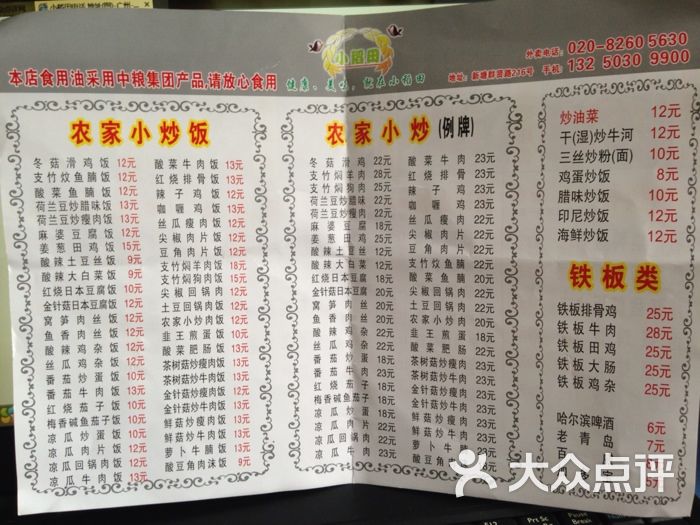 小稻田
健康、美味,就在小稻田
本店食用油采用中粮集团产品,请放心食用
外卖电话: 020-8260 5630
地址: 新塘群贤路215号 手机: 132 5030 9900
农家小炒饭
冬菇滑鸡饭 12元
支竹炆鱼腩饭 12元
酸菜鱼腩饭 12元
荷兰豆炒腊味饭 13元
荷兰豆炒瘦肉饭 13元
麻婆豆腐饭 12元
姜葱田鸡饭 15元
酸辣土豆丝饭 9元
酸辣大白菜饭 9元
红烧日本豆腐饭 10元
金针菇日本豆腐饭 12元
窝笋肉丝饭 12元
鱼香肉丝饭 12元
酸辣鸡杂饭 12元
丝瓜鸡杂饭 12元
番茄炒蛋饭 10元
番茄牛肉饭 13元
红烧茄子饭 10元
梅香碱鱼茄子饭 10元
凉瓜炒蛋饭 10元
凉瓜肉片饭 12元
凉瓜回锅肉饭 12元
凉瓜牛肉饭 13元
酸菜牛肉饭 13元
红烧排骨饭 13元
辣子鸡饭 12元
咖喱鸡饭 13元
丝瓜瘦肉饭 12元
尖椒肉片饭 12元
豆角肉片饭 12元
支竹焖羊肉饭 18元
支竹焖狗肉饭 15元
尖椒回锅肉饭 12元
土豆回锅肉饭 12元
农家小炒肉饭 12元
韭王煎蛋饭 12元
酸菜肥肠饭 13元
茶树菇炒瘦肉饭 13元
茶树菇炒牛肉饭 13元
金针菇炒瘦肉饭 12元
金针菇炒牛肉饭 13元
鲜菇炒瘦肉饭 12元
鲜菇炒牛肉饭 13元
萝卜牛腩饭 13元
酸豆角肉沫饭 9元
农家小炒(例牌)
冬菇滑鸡 22元
支竹焖羊肉 28元
支竹焖狗肉 25元
荷兰豆炒腊味 22元
荷兰豆炒瘦肉 22元
麻婆豆腐 18元
姜葱田鸡 25元
酸辣土豆丝 18元
酸辣大白菜 15元
红烧日本豆腐 20元
金针菇日本豆腐 20元
窝笋肉丝 22元
鱼香肉丝 22元
酸辣鸡杂 22元
丝瓜鸡杂 22元
番茄炒蛋 18元
番茄牛肉 23元
红烧茄子 18元
梅香碱鱼茄子 18元
凉瓜炒蛋 18元
凉瓜肉片 22元
凉瓜回锅肉 22元
凉瓜牛肉 23元
酸菜牛肉 23元
红烧排骨 23元
辣子鸡 23元
咖喱鸡 23元
丝瓜瘦肉 22元
尖椒肉片 22元
豆角肉片 22元
支竹炆鱼腩 22元
酸菜鱼腩 20元
尖椒回锅肉 22元
土豆回锅肉 22元
农家小炒肉 22元
韭王煎蛋 22元
酸菜肥肠 23元
茶树菇炒瘦肉 23元
茶树菇炒牛肉 23元
金针菇炒瘦肉 22元
金针菇炒牛肉 23元
鲜菇炒瘦肉 22元
鲜菇炒牛肉 23元
萝卜牛腩 23元
酸豆角肉沫
炒油菜 12元
干(湿)炒牛河 12元
三丝炒粉(面) 10元
鸡蛋炒饭 8元
腊味炒饭 10元
印尼炒饭 12元
海鲜炒饭 12元
铁板类
铁板排骨鸡 25元
铁板牛肉 28元
铁板田鸡 25元
铁板大肠 25元
铁板鸡杂 25元
哈尔滨啤酒 6元
老青岛 7元
5元
大众点评